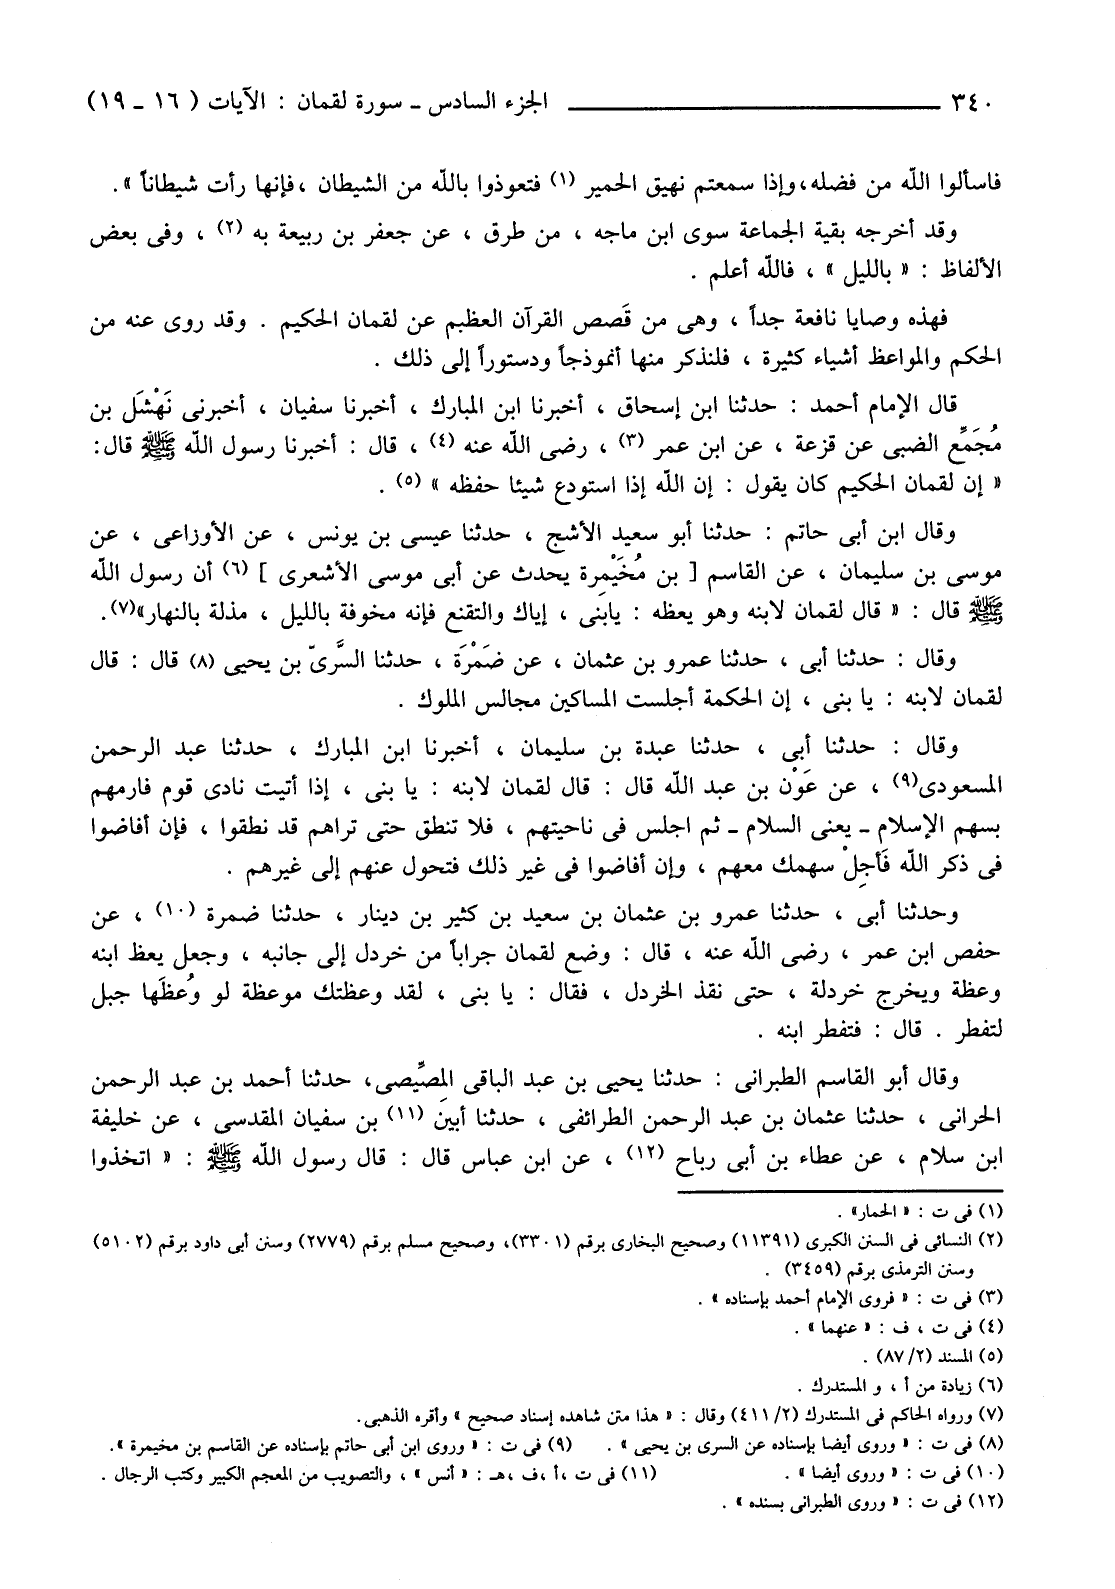 ٣٤٠ ـــــــــــــــــــــــــــــــــــــــ الجزء السادس ـ سورة لقمان : الآيات ( ١٦ ـ ١٩)
فاسألوا اللّه من فضله،وإذا سمعتم نهيق الحمير (١) فتعوذوا باللّه من الشيطان ،فإنها رأت شيطاناً ».
وقد أخرجه بقية الجماعة سوى ابن ماجه ، من طرق ، عن جعفر بن ربيعة به (٢) ، وفى بعض
الألفاظ : « بالليل » ، فاللّه أعلم .
فهذه وصايا نافعة جداً ، وهى من قَصص القرآن العظيم عن لقمان الحكيم . وقد روى عنه من
الحكم والمواعظ أشياء كثيرة ، فلنذكر منها أنموذجاً ودستوراً إلى ذلك .
قال الإمام أحمد : حدثنا ابن إسحاق ، أخبرنا ابن المبارك ، أخبرنا سفيان ، أخبرنى نَهْشَل بن
مُجَمِّع الضبى عن قزعة ، عن ابن عمر (٣) ، رضى اللّه عنه (٤) ، قال : أخبرنا رسول اللّه ﷺ قال:
« إن لقمان الحكيم كان يقول : إن اللّه إذا استودع شيئا حفظه » (٥) .
وقال ابن أبى حاتم : حدثنا أبو سعيد الأشج ، حدثنا عيسى بن يونس ، عن الأوزاعى ، عن
موسى بن سليمان ، عن القاسم [ بن مُخَيْمِرة يحدث عن أبى موسى الأشعرى ] (٦) أن رسول اللّه
ﷺ قال : « قال لقمان لابنه وهو يعظه : يابنى ، إياك والتقنع فإنه مخوفة بالليل ، مذلة بالنهار»(٧).
وقال : حدثنا أبى ، حدثنا عمرو بن عثمان ، عن ضَمْرَة ، حدثنا السَّرىّ بن يحيى (٨) قال : قال
لقمان لابنه : يا بنى ، إن الحكمة أجلست المساكين مجالس الملوك .
وقال : حدثنا أبى ، حدثنا عبدة بن سليمان ، أخبرنا ابن المبارك ، حدثنا عبد الرحمن
المسعودى(٩) ، عن عَوْن بن عبد اللّه قال : قال لقمان لابنه : يا بنى ، إذا أتيت نادى قوم فارمهم
بسهم الإسلام ـ يعنى السلام ـ ثم اجلس فى ناحيتهم ، فلا تنطق حتى تراهم قد نطقوا ، فإن أفاضوا
فى ذكر اللّه فَأجِلْ سهمك معهم ، وإن أفاضوا فى غير ذلك فتحول عنهم إلى غيرهم .
وحدثنا أبى ، حدثنا عمرو بن عثمان بن سعيد بن كثير بن دينار ، حدثنا ضمرة (١٠) ، عن
حفص ابن عمر ، رضى اللّه عنه ، قال : وضع لقمان جراباً من خردل إلى جانبه ، وجعل يعظ ابنه
وعظة ويخرج خردلة ، حتى نفذ الخردل ، فقال : يا بنى ، لقد وعظتك موعظة لو وُعظَها جبل
لتفطر . قال : فتفطر ابنه .
وقال أبو القاسم الطبرانى : حدثنا يحيى بن عبد الباقى المِصِّيصى، حدثنا أحمد بن عبد الرحمن
الحرانى ، حدثنا عثمان بن عبد الرحمن الطرائفى ، حدثنا أبين (١١) بن سفيان المقدسى ، عن خليفة
ابن سلام ، عن عطاء بن أبى رباح (١٢) ، عن ابن عباس قال : قال رسول اللّه ﷺ : « اتخذوا
(١) فى ت : « الحمار» .
(٢) النسائى فى السنن الكبرى (١١٣٩١) وصحيح البخارى برقم (٣٣٠١)، وصحيح مسلم برقم (٢٧٧٩) وسنن أبى داود برقم (٥١٠٢)
وسنن الترمذى برقم (٣٤٥٩) .
(٣) فى ت : « فروى الإمام أحمد بإسناده » .
(٤) فى ت ، ف : « عنهما » .
(٥) المسند (٢/ ٨٧) .
(٦) زيادة من أ ، و المستدرك .
(٧) ورواه الحاكم فى المستدرك (٢/ ٤١١) وقال : « هذا متن شاهده إسناد صحيح » وأقره الذهبى.
(٨) فى ت : « وروى أيضا بإسناده عن السرى بن يحيى » . (٩) فى ت : « وروى ابن أبى حاتم بإسناده عن القاسم بن مخيمرة ».
(١٠) فى ت : « وروى أيضا » . (١١) فى ت ،أ ،ف ،هـ : « أنس » ، والتصويب من المعجم الكبير وكتب الرجال .
(١٢) فى ت : « وروى الطبرانى بسنده » .